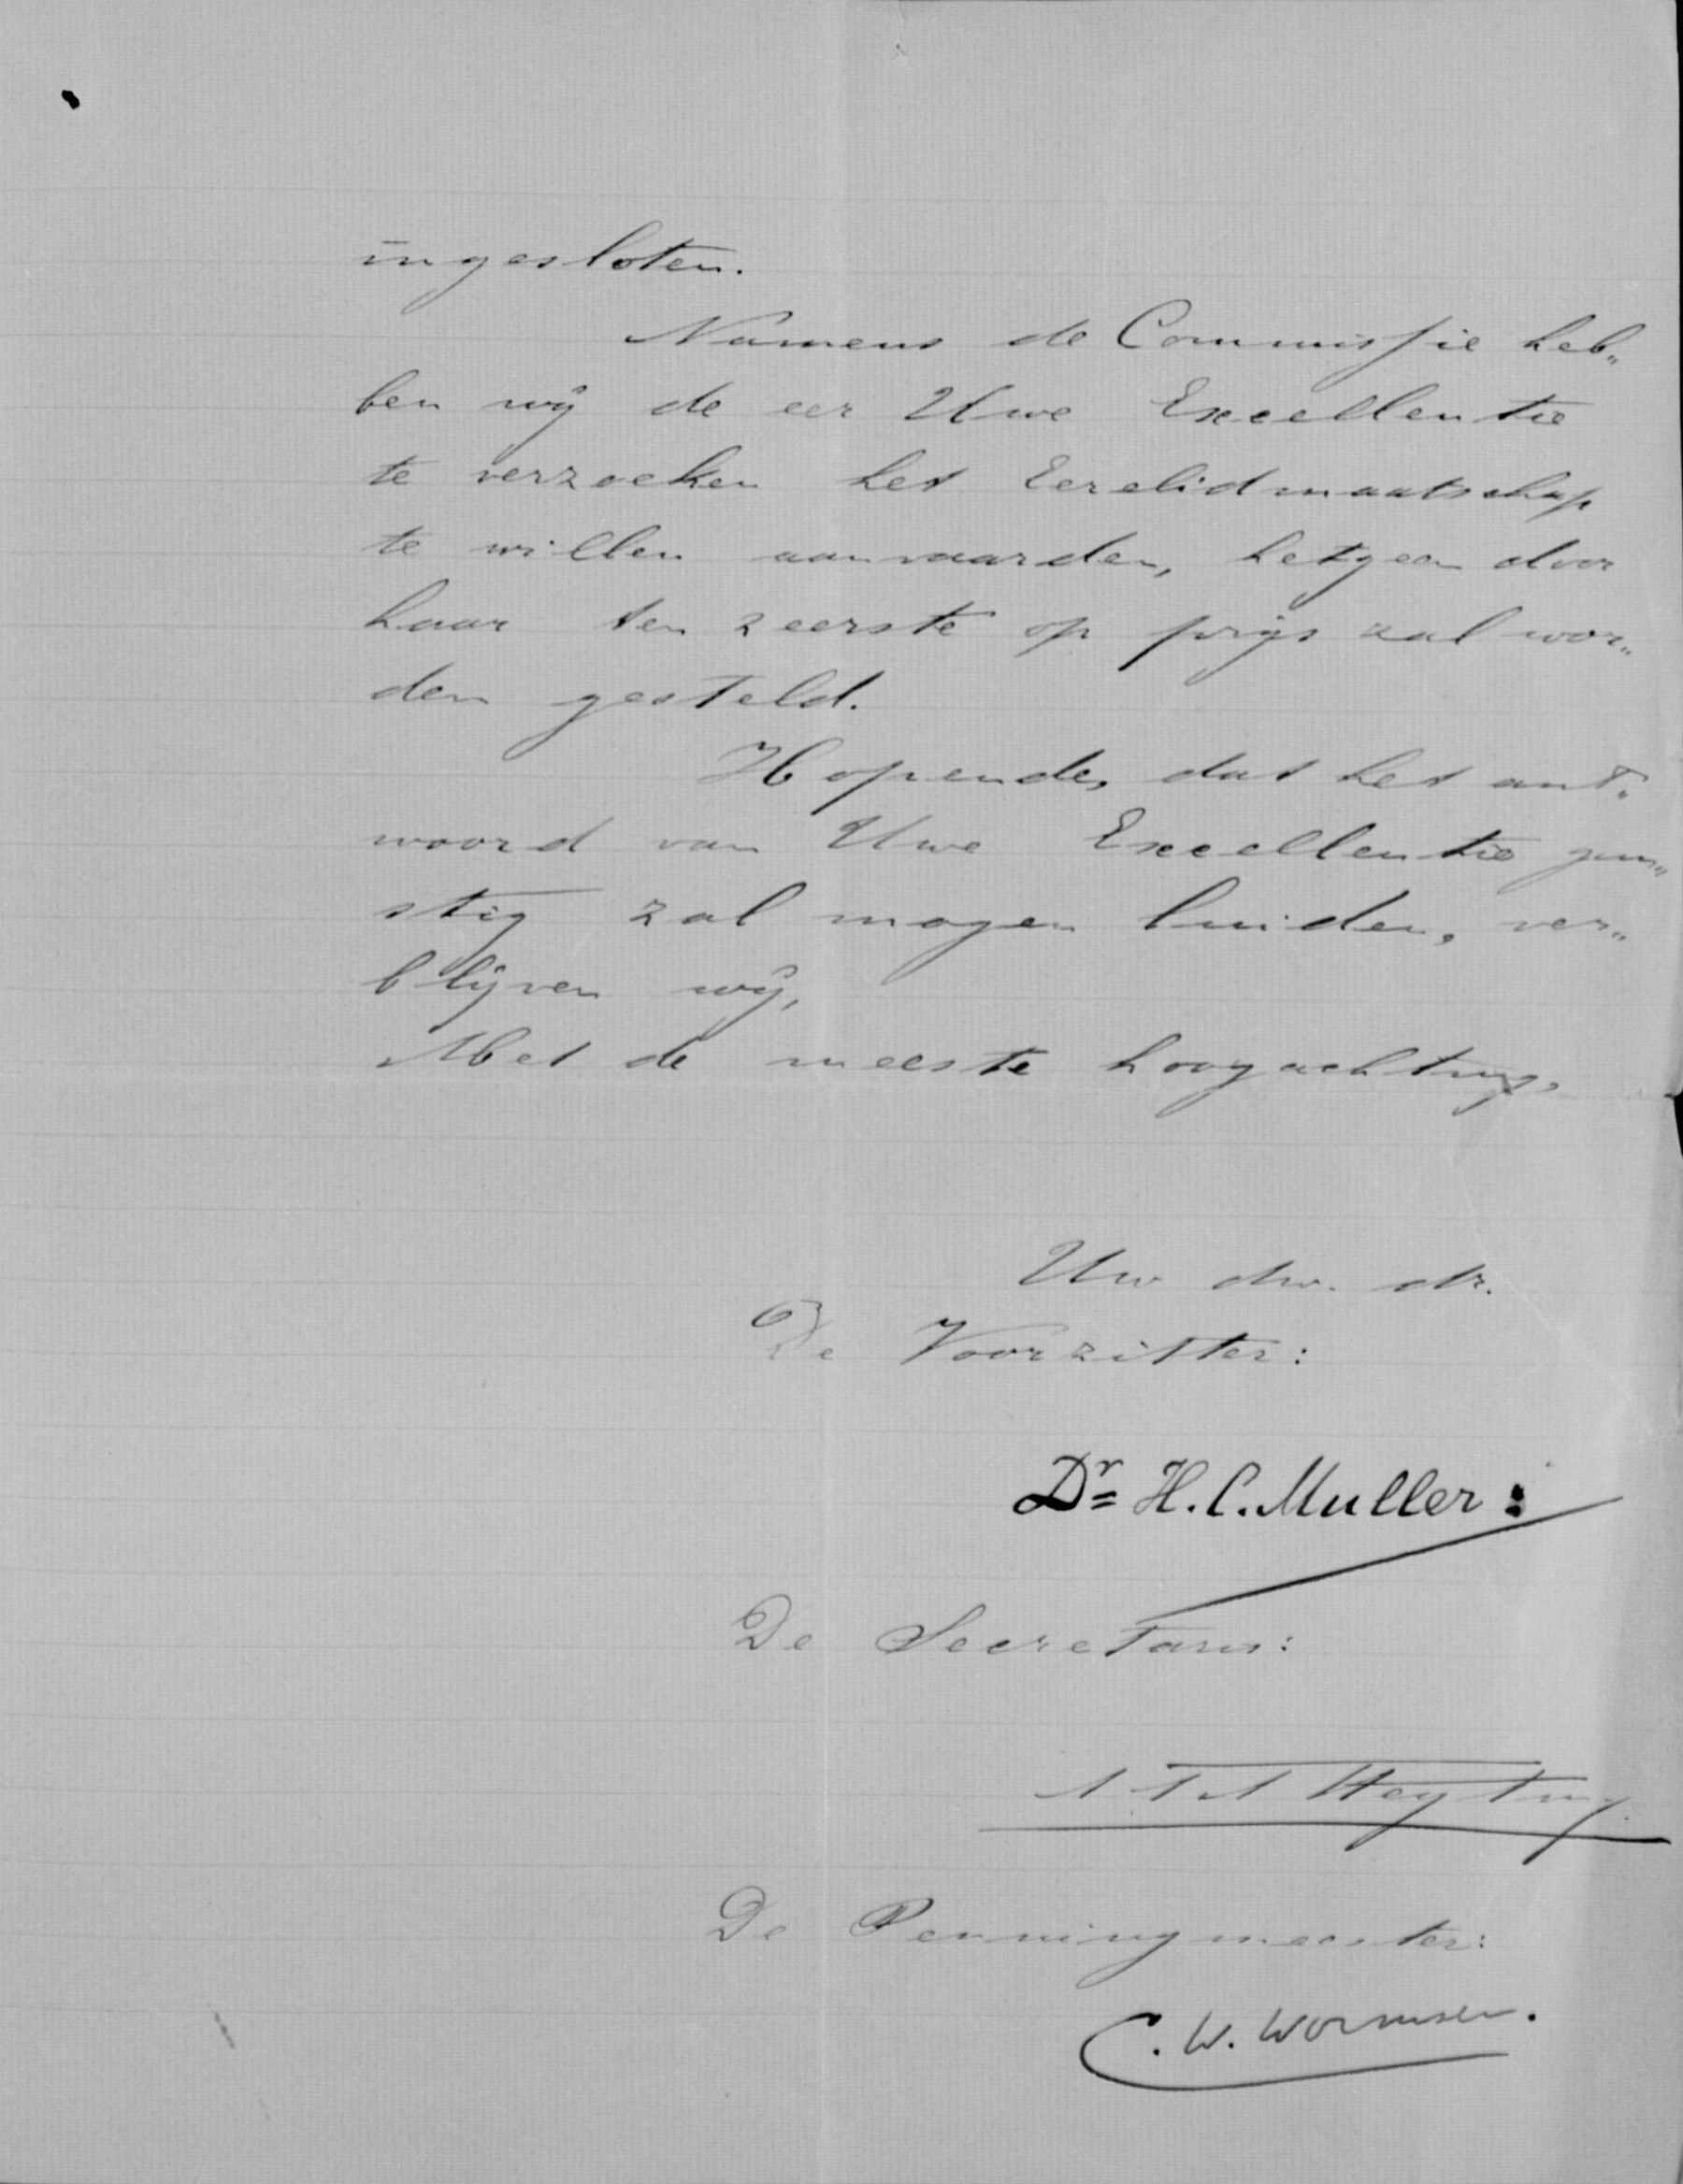 ingesloten.
Namens de Commissie heb„
ben wij de eer Uwe Excellentie
te verzoeken het Eerelidmaatschap
te willen aanvaarden, hetgeen door
haar ten zeerste op prijs zal wor„
den gesteld.
Hopende, dat het ant„
woord van Uwe Excellentie gun„
stig zal mogen luiden, ver„
blijven wij,
Met de meeste hoogachting,
Uw dw. dr.
De Voorzitter:
Dr H. C. Muller:
De Secretaris:
Heyting
De Penningmeester:
C. W. Wormser.